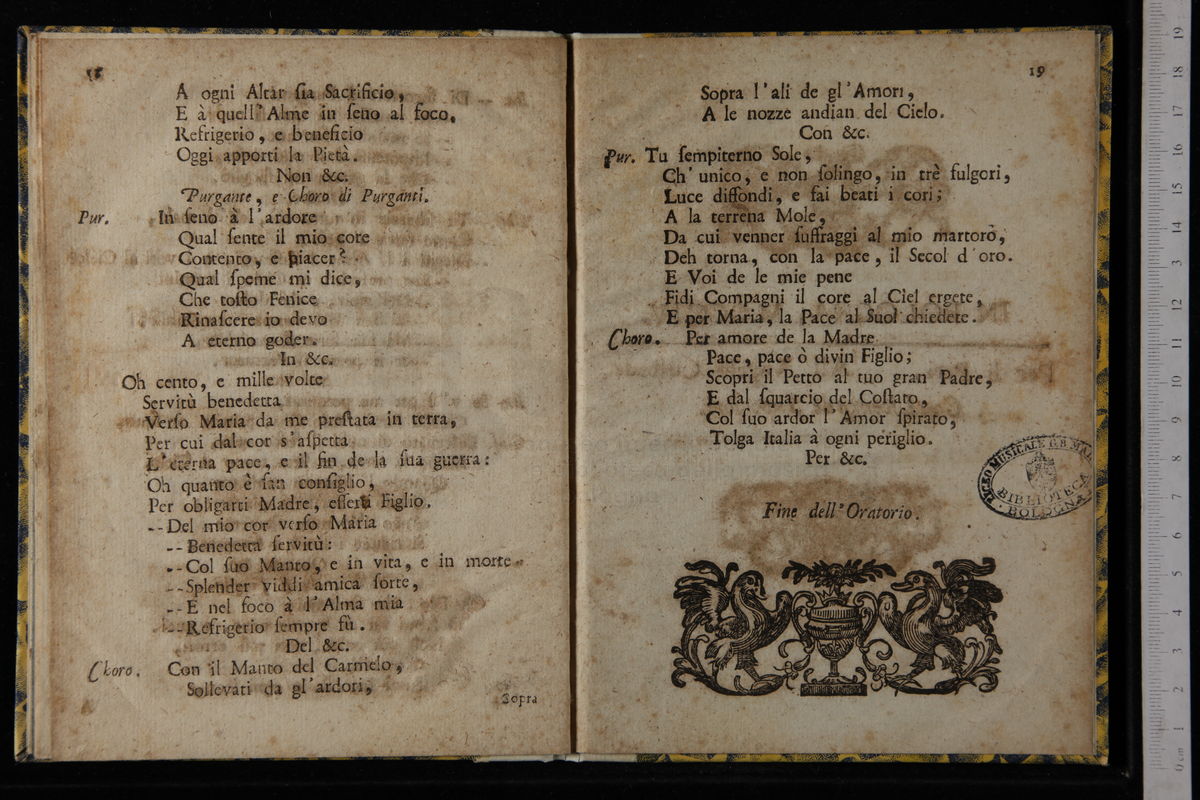 A ogni Altar ſia Sacrificio,
E à quell'Alme in ſeno al foco,
Refrigerio, e beneficio
Oggi apporti la Pietà.
Non &c.
Purgante, e Choro di Purganti.
Pur. In ſeno à l'ardore
Qual ſente il mio core
Contento, e piacer?
Qual ſpeme mi dice,
Che toſto Fenice
Rinaſcere io devo
A eterno goder.
In &c.
Oh cento, e mille volte
Servitù benedetta
Verſo Maria da me preſtata in terra,
Per cui dal cor s'aſpetta
L'eterna pace, e il fin de la ſua guerra:
Oh quanto è ſan conſiglio,
Per obligarti Madre, eſſerti Figlio.
--Del mio cor verſo Maria
--Benedetta ſervitù:
--Col ſuo Manto, e in vita, e in morte
--Splender viddi amica ſorte,
--E nel foco à l'Alma mia
--Refrigerio ſempre fù.
Del &c.
Choro. Con il Manto del Carmelo,
Sollevati da gl'ardori,
Sopra
19
Sopra l'ali de gl'Amori,
A le nozze andian del Cielo.
Con &c.
Pur. Tu ſempiterno Sole,
Ch'unico, e non ſolingo, in trè fulgori,
Luce diffondi, e fai beati i cori;
A la terrena Mole,
Da cui venner ſuffraggi al mio martoro,
Deh torna, con la pace, il Secol d'oro.
E Voi de le mie pene
Fidi Compagni il core al Ciel ergete,
E per Maria, la Pace al Suol chiedete.
Choro. Per amore de la Madre
Pace, pace ò divin Figlio;
Scopri il Petto al tuo gran Padre,
E dal ſquarcio del Coſtato,
Col ſuo ardor l'Amor ſpirato,
Tolga Italia à ogni periglio.
Per &c.
Fine dell'Oratorio.
LICEO MUSICALE
BIBLIOTECA
BOLOGNA
0 cm 1 2 3 4 5 6 7 8 9 10 11 12 13 14 15 16 17 18 19